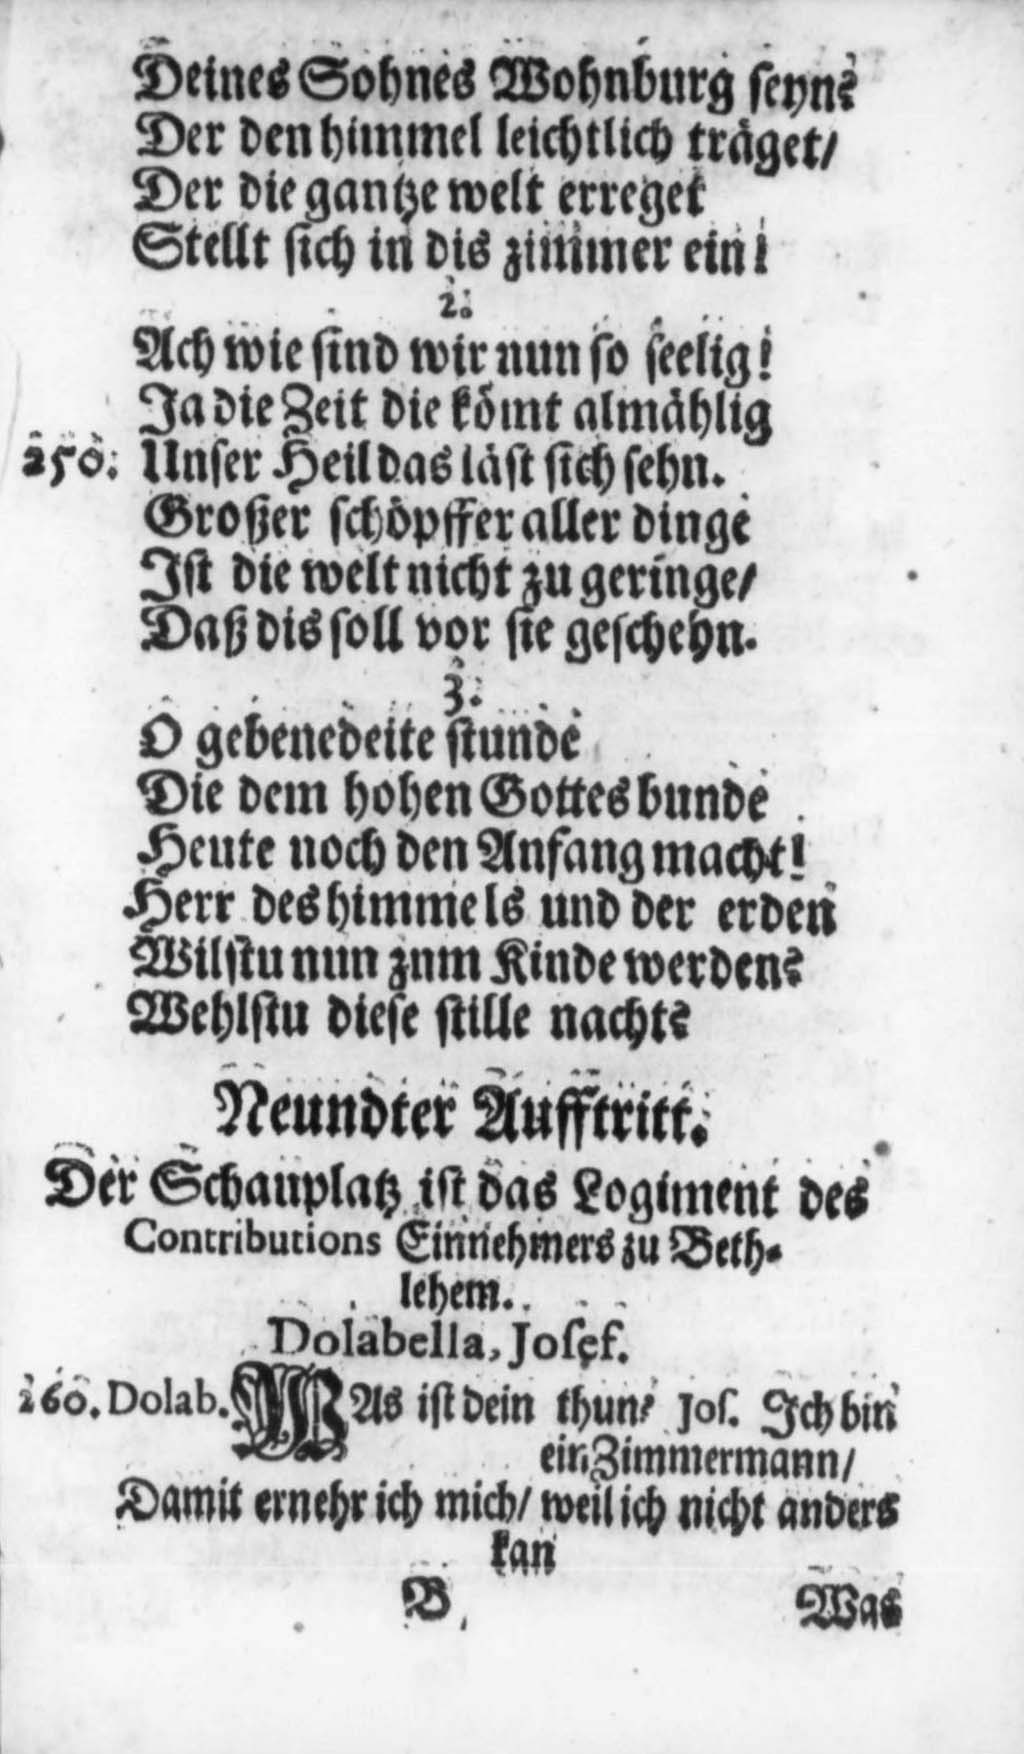 Deines Sohnes Wohnburg seyn?
Der den himmel leichtlich träget/
Der die gantze welt erreget
Stellt sich in dis zimmer ein!
2.
Ach wie sind wir nun so seelig!
Ja die Zeit die kömt almählig
250. Unser Heil das läst sich sehn.
Großer schöpffer aller dinge
Ist die welt nicht zu geringe/
Daß dis soll vor sie geschehn.
3.
O gebenedeite stunde
Die dem hohen Gottes bunde
Heute noch den Anfang macht!
Herr des himmels und der erden
Wilstu nun znm Kinde werden?
Wehlstu diese stille nacht?
Neundter Aufftritt.
Der Schauplatz ist das Logiment des
Contributions Einnehmers zu Beth-
lehem.
Dolabella, Josef.
260. Dolab. WAs ist dein thun? Jos. Ich bin
ein Zimmermann/
Damit ernehr ich mich/ weil ich nicht anders
kan
B
Was